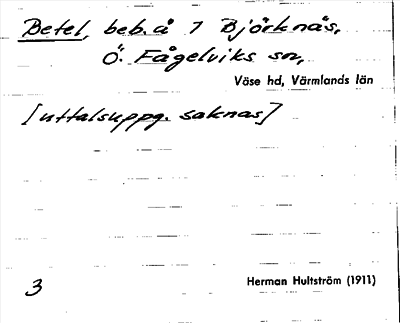 Betel, beb. å 7 Björknäs,
Ö. Fågelviks sn,
Väse hd, Värmlands län
[uttalsuppg. saknas]
3
Herman Hultström (1911)